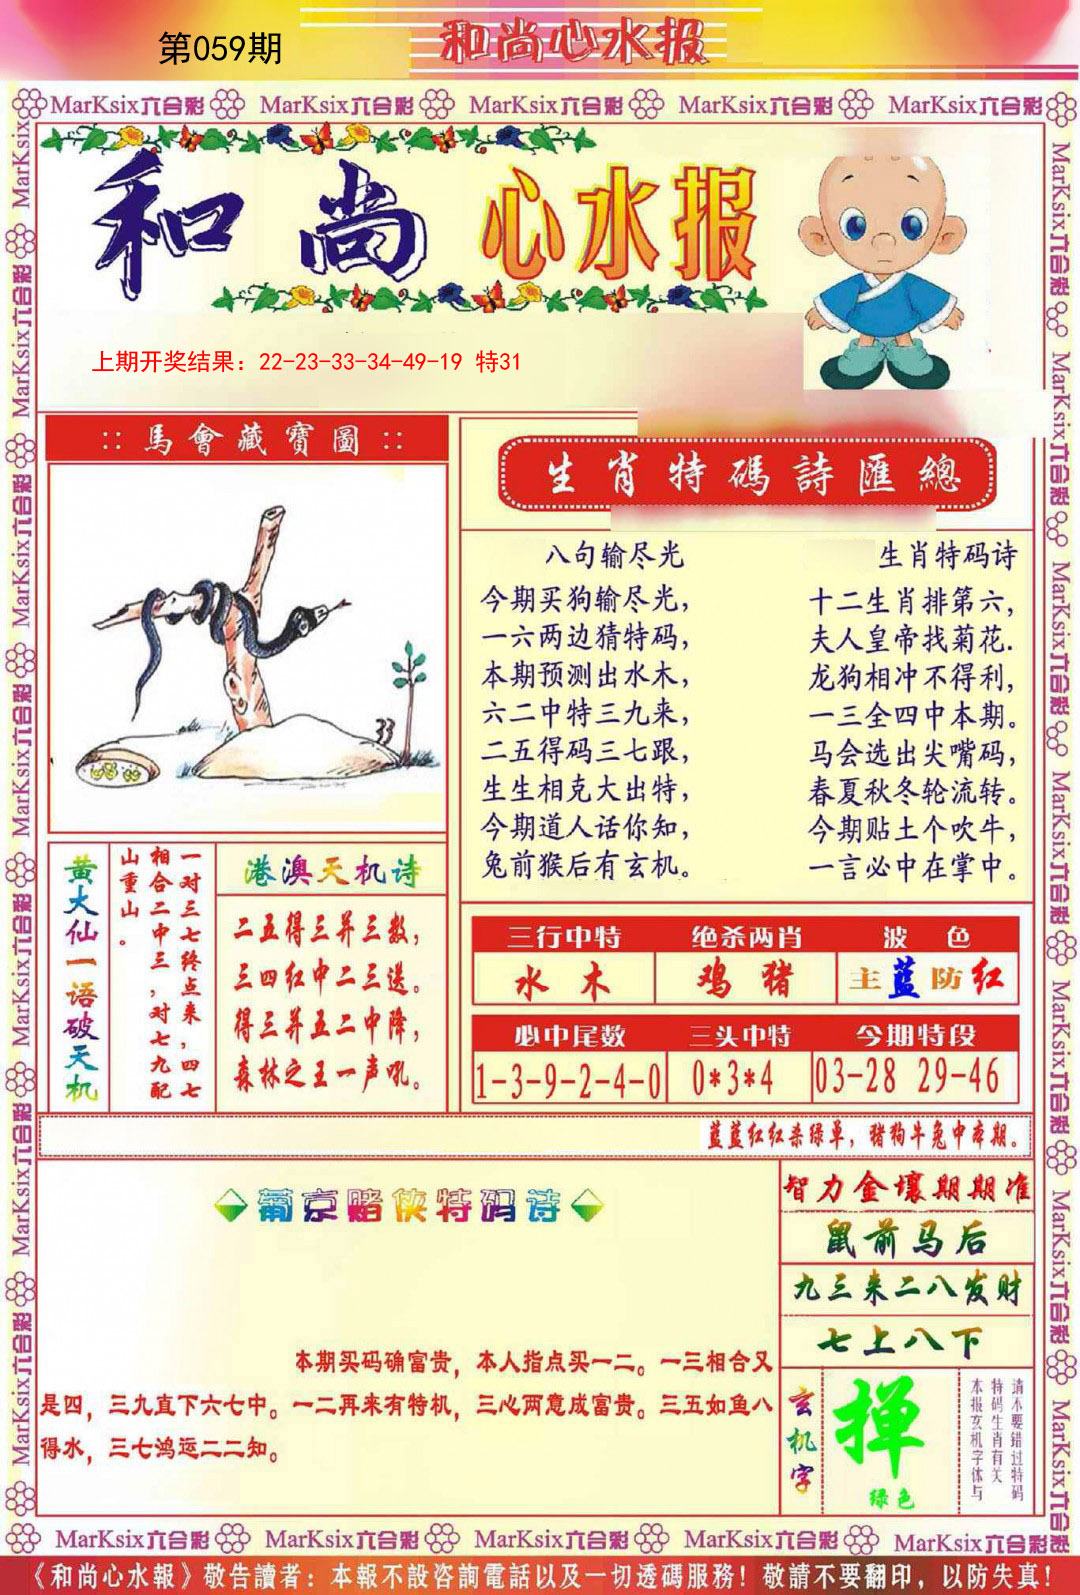 第059期
和尚心水报
MarKsix六合彩 MarKsix六合彩 MarKsix六合彩 MarKsix六合彩 MarKsix六合彩
和尚心水报
上期开奖结果：22-23-33-34-49-19 特31
::馬會藏寶圖::
33
生肖特碼詩匯總
八句输尽光
今期买狗输尽光，
一六两边猜特码，
本期预测出水木，
六二中特三九来，
二五得码三七跟，
生生相克大出特，
今期道人话你知，
兔前猴后有玄机。
生肖特码诗
十二生肖排第六，
夫人皇帝找菊花.
龙狗相冲不得利，
一三全四中本期。
马会选出尖嘴码，
春夏秋冬轮流转。
今期贴土个吹牛，
一言必中在掌中。
黄大仙一语破天机
一对三七终点来，四七
相合二中三，对七九配
山重山。
港澳天机诗
二五得三并三数，
三四红中二三送。
得三并五二中降，
森林之王一声吼。
三行中特 绝杀两肖 波色
水木 鸡猪 主蓝防红
必中尾数 三头中特 今期特段
1-3-9-2-4-0 0*3*4 03-28 29-46
蓝蓝红红杀绿单，猪狗牛兔中本期。
葡京赌侠特码诗
本期买码确富贵，本人指点买一二。一三相合又
是四，三九直下六七中。一二再来有特机，三心两意成富贵。三五如鱼八
得水，三七鸿运二二知。
智力金壤期期准
鼠前马后
九三来二八发财
七上八下
玄机字
禅
绿色
请不要错过特码
特码生肖有关
本报玄机字体与
MarKsix六合彩 MarKsix六合彩 MarKsix六合彩 MarKsix六合彩 MarKsix六合彩
《和尚心水報》敬告讀者：本報不設咨詢電話以及一切透碼服務！敬請不要翻印，以防失真！